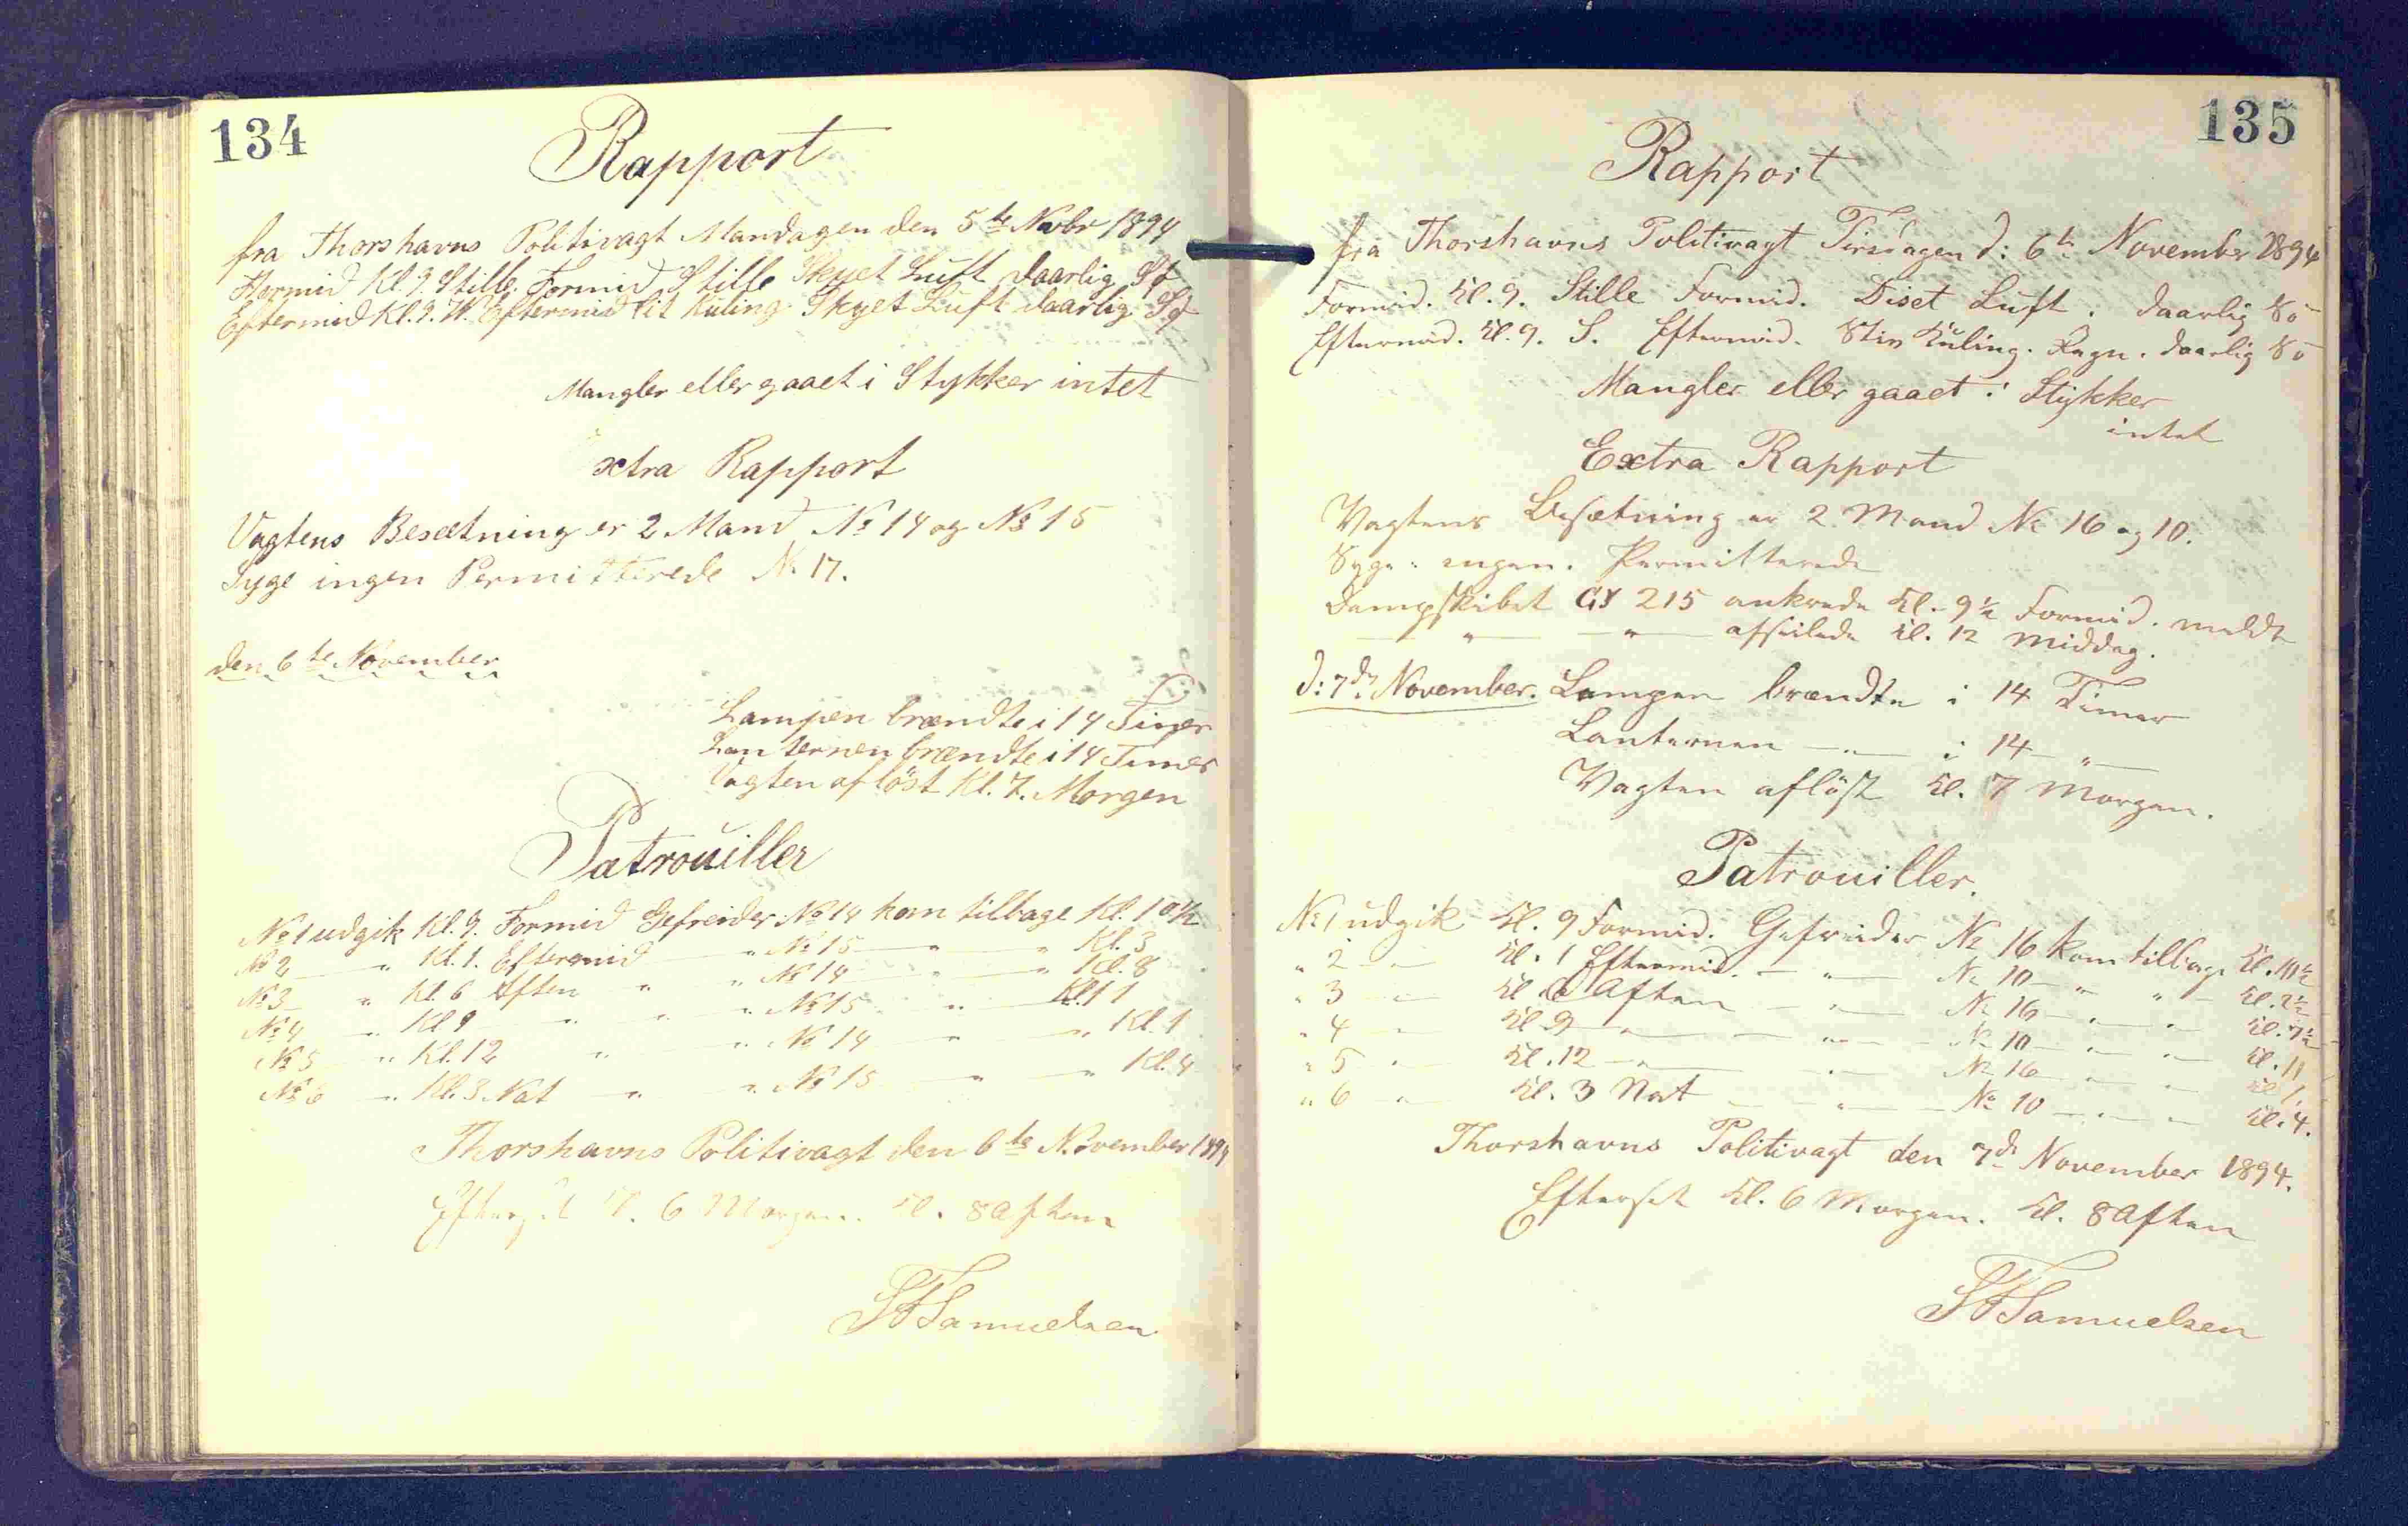 134
Rapport
fra Thorshavns Politivagt Mandagen den 5te Novbr 1894
Formid Kl. 9. Stille. Formid Stille Skyet Luft daarlig Sø
Eftermid Kl. 9. W. Eftermid lit Kuling Skyet Luft daarlig Sø
Mangler eller gaaet i Stykker intet
xtra Rapport
Vagtens Besætning er 2 Mand No 14 og No 15
Syge ingen Permitterede No 17.
den 6te November
Lampen brændte i 14 Timer
Lanternen brændte i 14 Timer
Vagten aflöst Kl. 7. Morgen
Patrouiller
No 1 udgik Kl. 9. Formid Gefreider No 14 kom tilbage Kl. 10½
No 2 — " Kl. 1. Eftermid — " No 15 — " " Kl. 3
No 3 " Kl. 6 Aften " " No 14 — " " Kl. 8
No 4 — " Kl 9 " " " No 15 " Kl. 11
No 5 — " Kl. 12 " " No 14 " " Kl. 1
No 6 — " Kl. 3. Nat " " No 15 — " " Kl. 4
Thorshavns Politivagt den 6te November 1894
Efterset Kl. 6 Morgen. Kl. 8 Aften
Samuelsen
135
Rapport
fra Thorshavns Politivagt Tirsdagen d: 6te November 1894
Formid. Kl. 9. Stille Formid. Diset Luft. daarlig Sö
Eftermid. Kl. 9. S. Eftermid. Stiv Kuling. Regn. daarlig Sö
Mangler eller gaaet i Stykker
intet
Extra Rapport
Vagtens Besætning er 2 Mand No 16 og 10.
Syge: ingen. Permitterede
Dampskibet GY 215 ankrede Kl. 9½ Formid. meldt
— " — — " — afseilede Kl. 12 Middag.
d: 7de November. Lampen brændte i 14 Timer
Lanternen — " — i 14 — " —
Vagten aflöst Kl. 7 Morgen.
Patrouiller.
No 1 udgik Kl. 9 Formid. Gefreider No 16 kom tilbage Kl. 10½
" 2 — " — Kl. 1 Eftermid. — " — No 10 — " " — Kl. 2½
" 3 — " — Kl. 6 Aften — " — No 16 — " — " — Kl. 7½
" 4 — " — Kl 9 — " — — " — No 10 — " — " — Kl. 11
" 5 — " — Kl. 12 — " — — " — No 16 — " — " — Kl 1
" 6 — " — Kl. 3 Nat — " — No 10 — " — " — Kl. 4.
Thorshavns Politivagt den 7de November 1894.
Efterset Kl. 6 Morgen. Kl. 8 Aften
Samuelsen